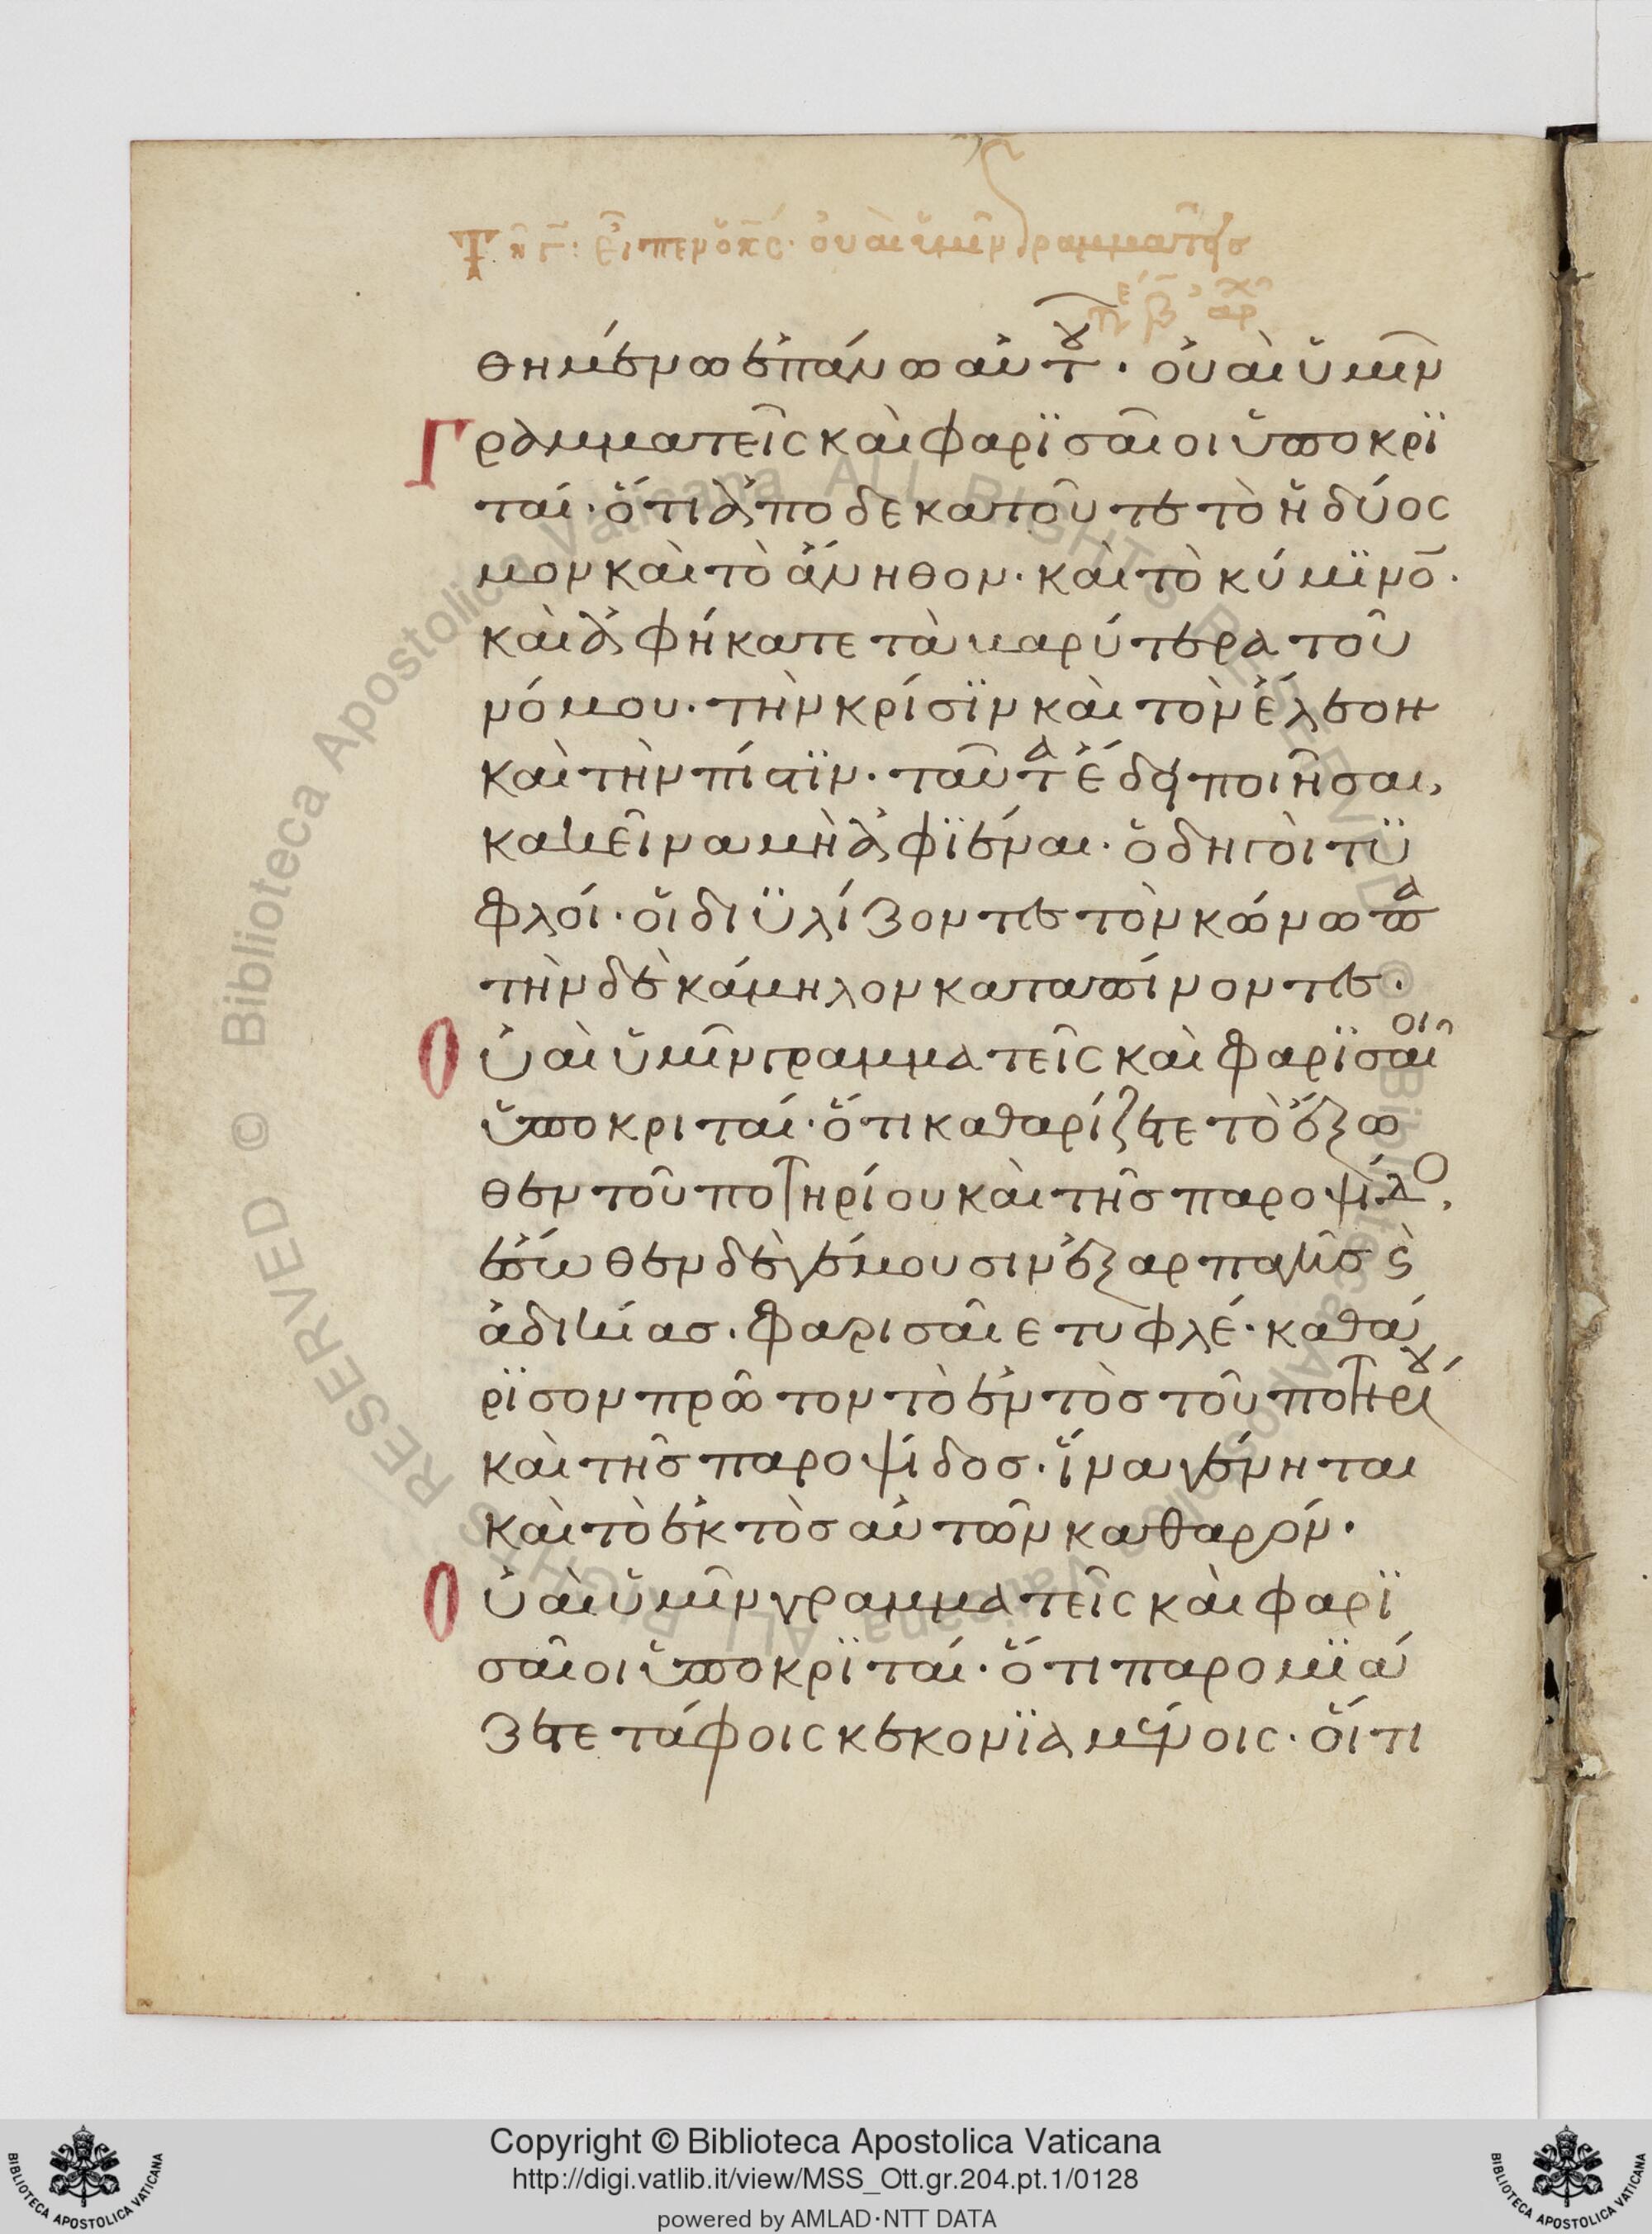 εἶπεν ὁ κς· οὐαὶ ὑμῖν γραμματεῖς
θημένω ἐπάνω αὐτοῦ· οὐαὶ ὑμῖν
Γραμματεῖς καὶ φαρϊσαῖοι ὑποκρϊ
ταί· ὅτι ἀποδεκατοῦτε τὸ ἡδύος
μον καὶ τὸ ἄνηθον· καὶ τὸ κύμϊνο̅·
καὶ ἀφήκατε τὰ βαρύτερα τοῦ
νόμου· τὴν κρίσϊν καὶ τὸν ἔλεον
καὶ τὴν πίστϊν· ταῦτα ἔδει ποιῆσαι,
κακεῖνα μὴ ἀφϊέναι· ὁδηγοὶ τϋ
φλοί· οἱ διϋλίζοντες τὸν κώνωπα
τὴν δὲ κάμηλον καταπίνοντες·
Οὐαὶ ὑμῖν γραμματεῖς καὶ φαρϊσαῖοι
ὑποκριταί· ὅτι καθαρίζετε τὸ ἔξω
θεν τοῦ ποτηρίου καὶ τῆς παροψίδο,
ἔσωθεν δὲ γέμουσιν ἐξ αρπαγῆς ϗ
ἀδικίας· Φαρισαῖε τυφλέ· καθά
ρϊσον πρῶτον τὸ ἐντὸς τοῦ ποτηρίου
καὶ τῆς παροψίδος· ἵνα γένηται
καὶ τὸ ἐκτὸς αὐτῶν καθαρόν·
Οὐαὶ ὑμῖν γραμματεῖς καὶ φαρϊ
σαῖοι ὑποκρϊταί· ὅτι παρομϊά
ζετε τάφοις κεκονϊαμένοις· οἵτι
Copyright © Biblioteca Apostolica Vaticana
http://digi.vatlib.it/view/MSS_Ott.gr.204.pt.1/0128
powered by AMLAD·NTT DATA
BIBLIOTECA APOSTOLICA VATICANA
BIBLIOTECA APOSTOLICA VATICANA
© Biblioteca Apostolica Vaticana ALL RIGHTS RESERVED
© Biblioteca Apostolica Vaticana ALL RIGHTS RESERVED